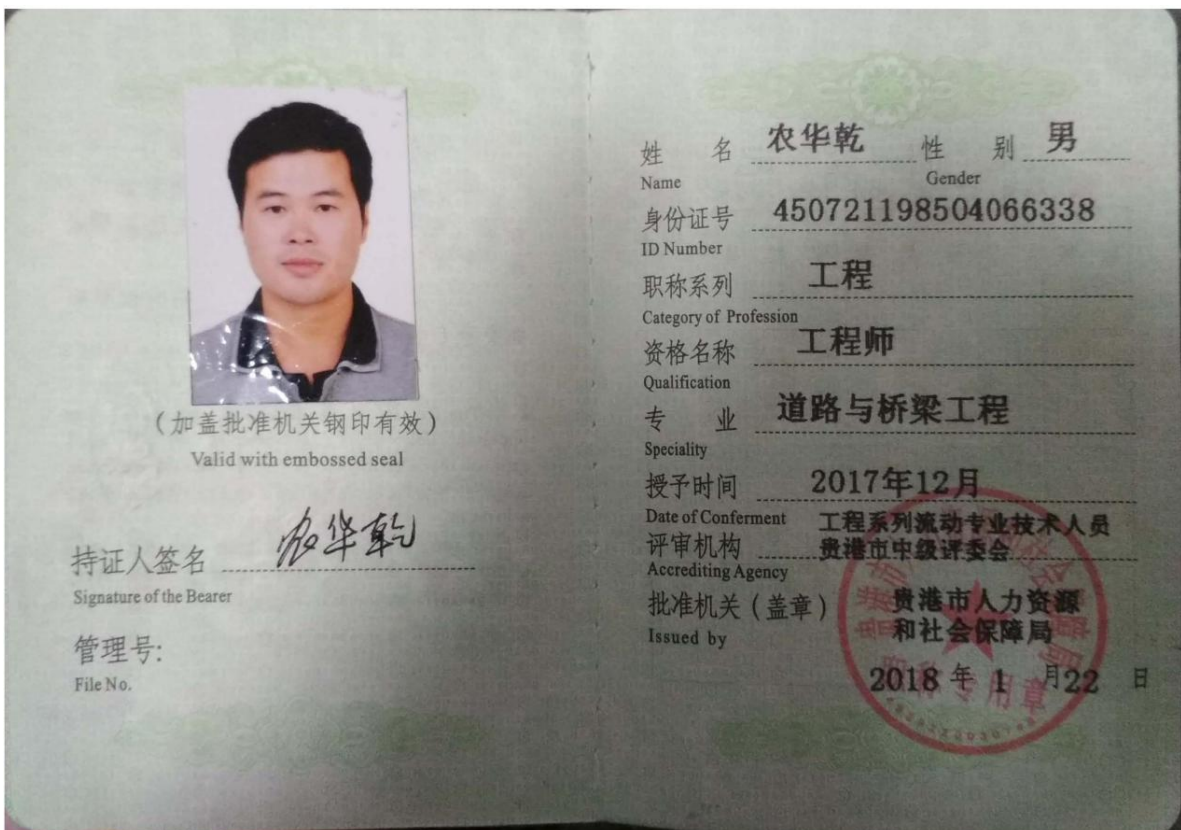 （加盖批准机关钢印有效）
Valid with embossed seal
持证人签名 农华乾
Signature of the Bearer
管理号:
File No.
姓 名 农华乾 性 别 男
Name Gender
身份证号 450721198504066338
ID Number
职称系列 工程
Category of Profession
资格名称 工程师
Qualification
专 业 道路与桥梁工程
Speciality
授予时间 2017年12月
Date of Conferment
评审机构 工程系列流动专业技术人员
贵港市中级评委会
Accrediting Agency
批准机关（盖章） 贵港市人力资源
和社会保障局
Issued by
2018 年 1 月22 日
职称专用章